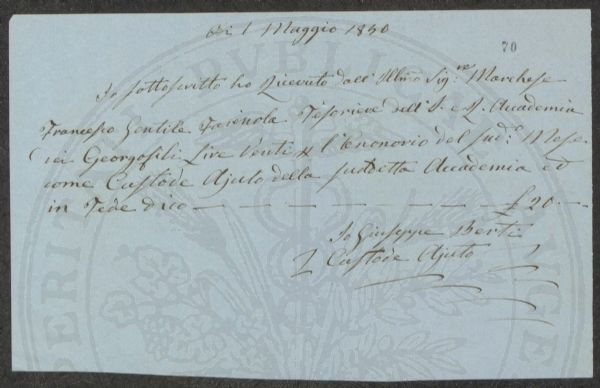 Di 1 Maggio 1850
70
Io sottoscritto ho Ricevuto dall' Illmo Sig.re Marchese
Francesco Gentile Farinola Tesoriere dell' I. e R. Accademia
dei Georgofili Lire Venti l'Enonorio del sud.o Mese
come Custode Ajuto della suddetta Accademia ed
in Fede dico — — — — — — £ 20. —
Io Giuseppe Berti
Custode Ajuto